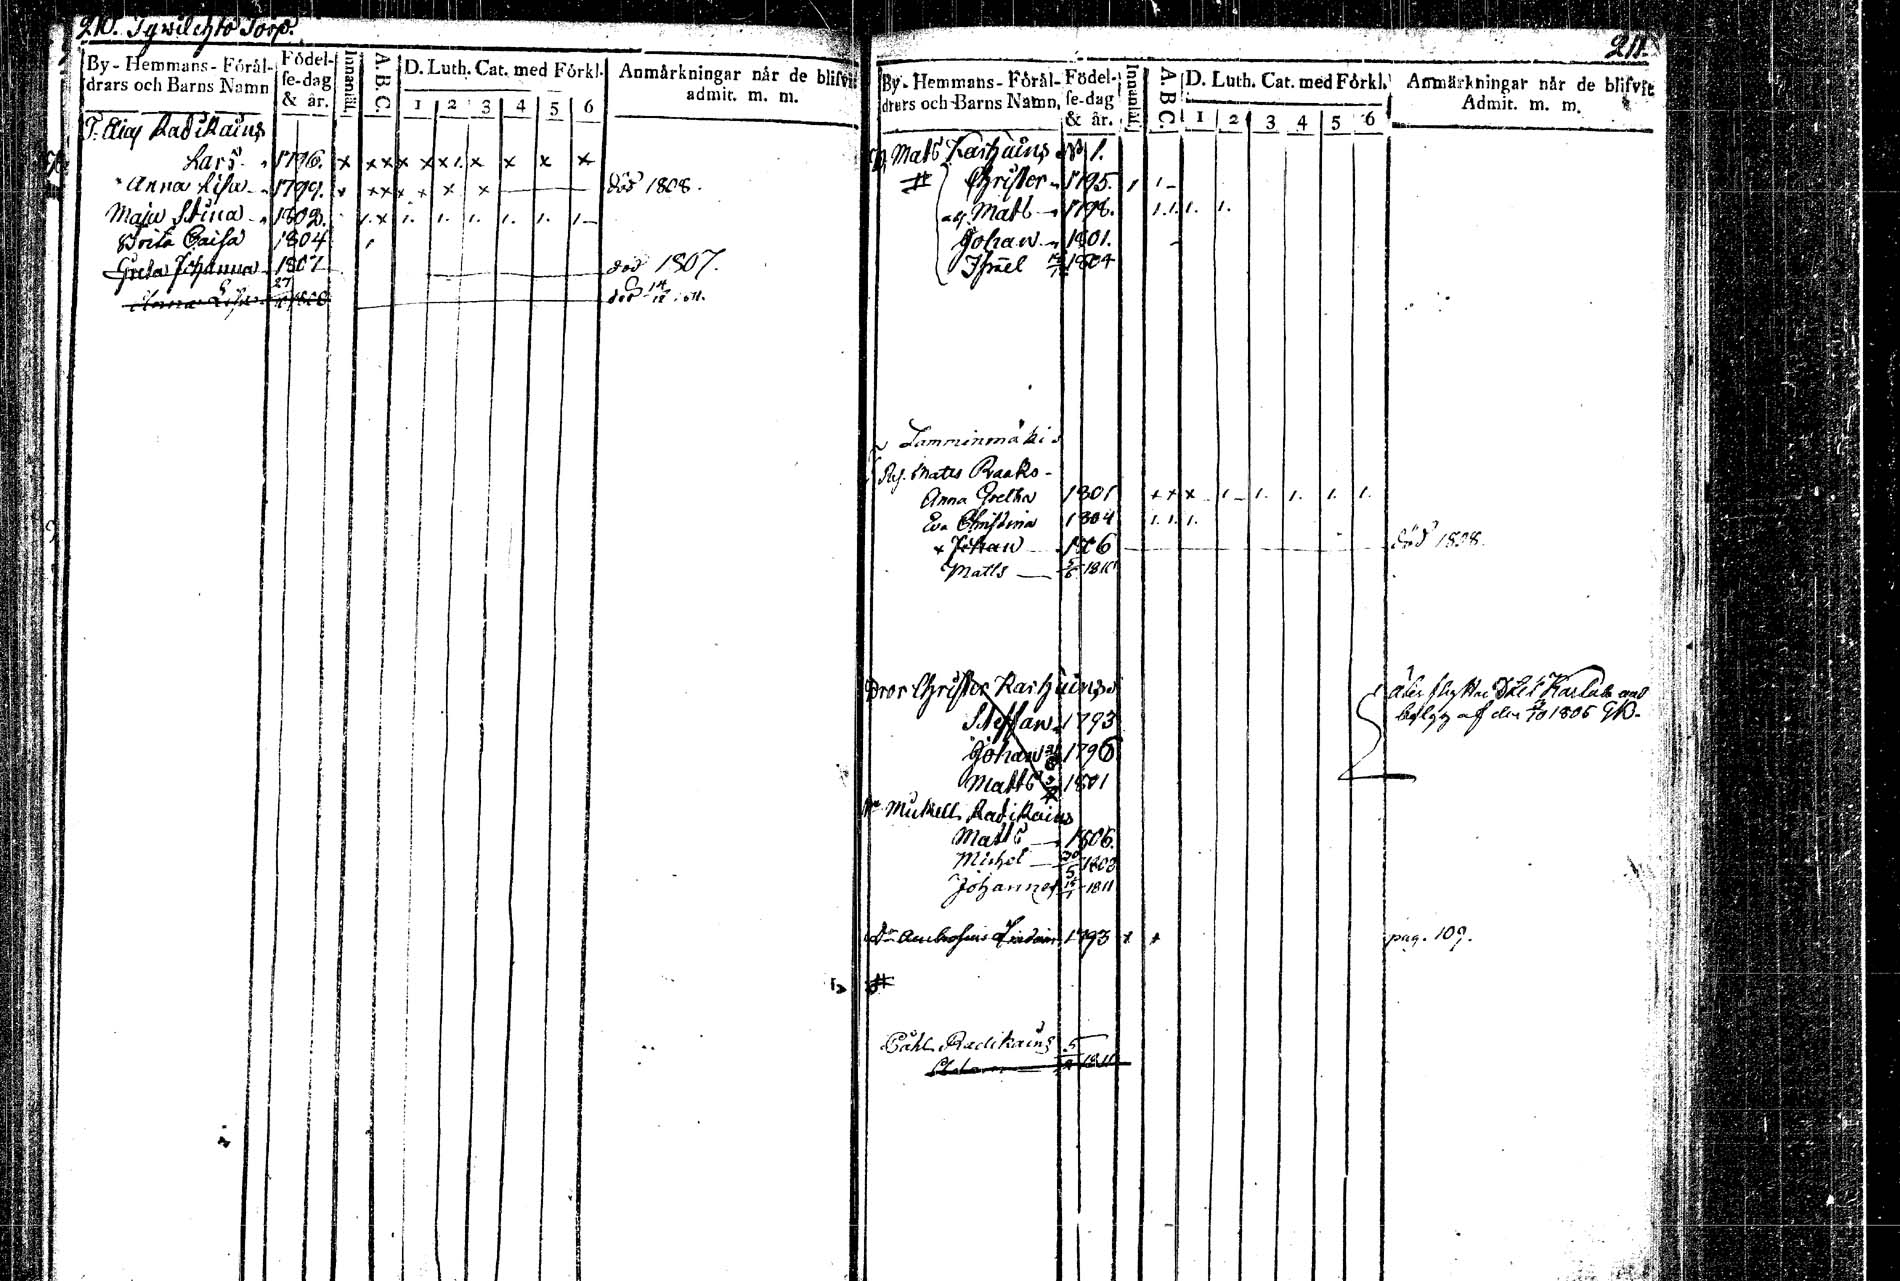 210. Torp.
By-Hemmans-Föräl-
drars och Barns Namn
Födel-
se-dag
& år.
Innanläs.
A.B.C.
D. Luth. Cat. med Förkl.
1 2 3 4 5 6
Anmärkningar när de blifvit
admit. m. m.
Radikains
Lars 1796. x x x x x x 1. x x x x
Anna Lisa 1799. x x x x x x död 1808.
Maja Stina 1802. 1. x 1. 1. 1. 1. 1. 1.
Brita Caisa 1804
Greta Johanna 1807 död 1807.
27
Anna Lisa död 14
211.
By-Hemmans-Föräl-
drars och Barns Namn,
Födel-
se-dag
& år.
Innanläs.
A.B.C.
D. Luth. Cat. med Förkl.
1 2 3 4 5 6
Anmärkningar när de blifvit
Admit. m. m.
Mats Karhuins № 1.
# Christer 1795. 1 1
Mats 1798. 1. 1. 1. 1.
Johan 1801.
Israel 1804
Lamminmäki
Mats Raako
Anna Gretha 1801 x x x 1. 1. 1. 1. 1.
Eva Christina 1804 1. 1. 1.
x Johan 1806 död 1808.
Matts 1810
Bror Christer Karhuins
Steffan 1793
Johan 1796
Matts 1801
åter flyttat
af den 1806
Mickell Radikains
Matts 1806.
Michel 30/5 1808
Johannes 1811
Ambrosius 1793 x x pag. 109.
#
Påhl Radikains 5
1811